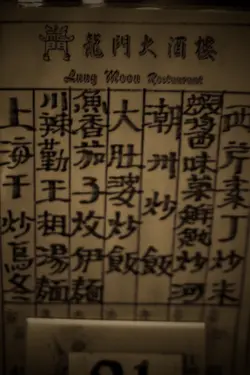 龍門大酒樓
Lung Moon Restaurant
西芹菜丁炒米
蝦醬味菜鮮魷炒河
朝州炒飯
大肚婆炒飯
魚香茄子炆伊麵
川辣勤王粗湯麵
上海干炒烏冬
21